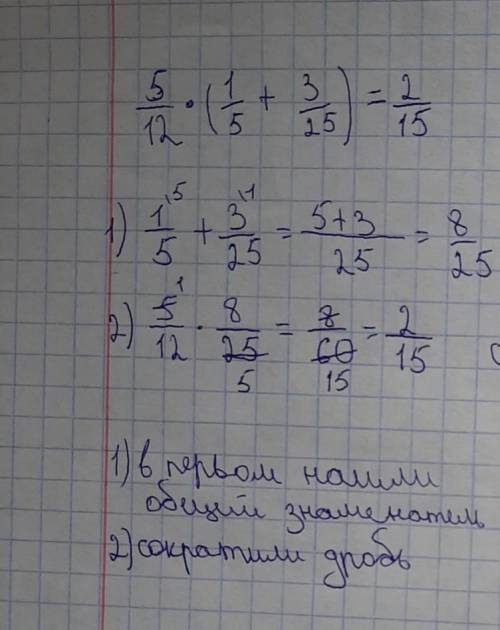 5/12 · (1/5 + 3/25) = 2/15
1) 1/5 ⁽⁵ + 3/25 ⁽¹ = 5+3/25 = 8/25
2) 5/12 ¹ · 8/25 5 = 8/60 15 = 2/15
1) в первом нашли
общий знаменатель
2) сократили дробь